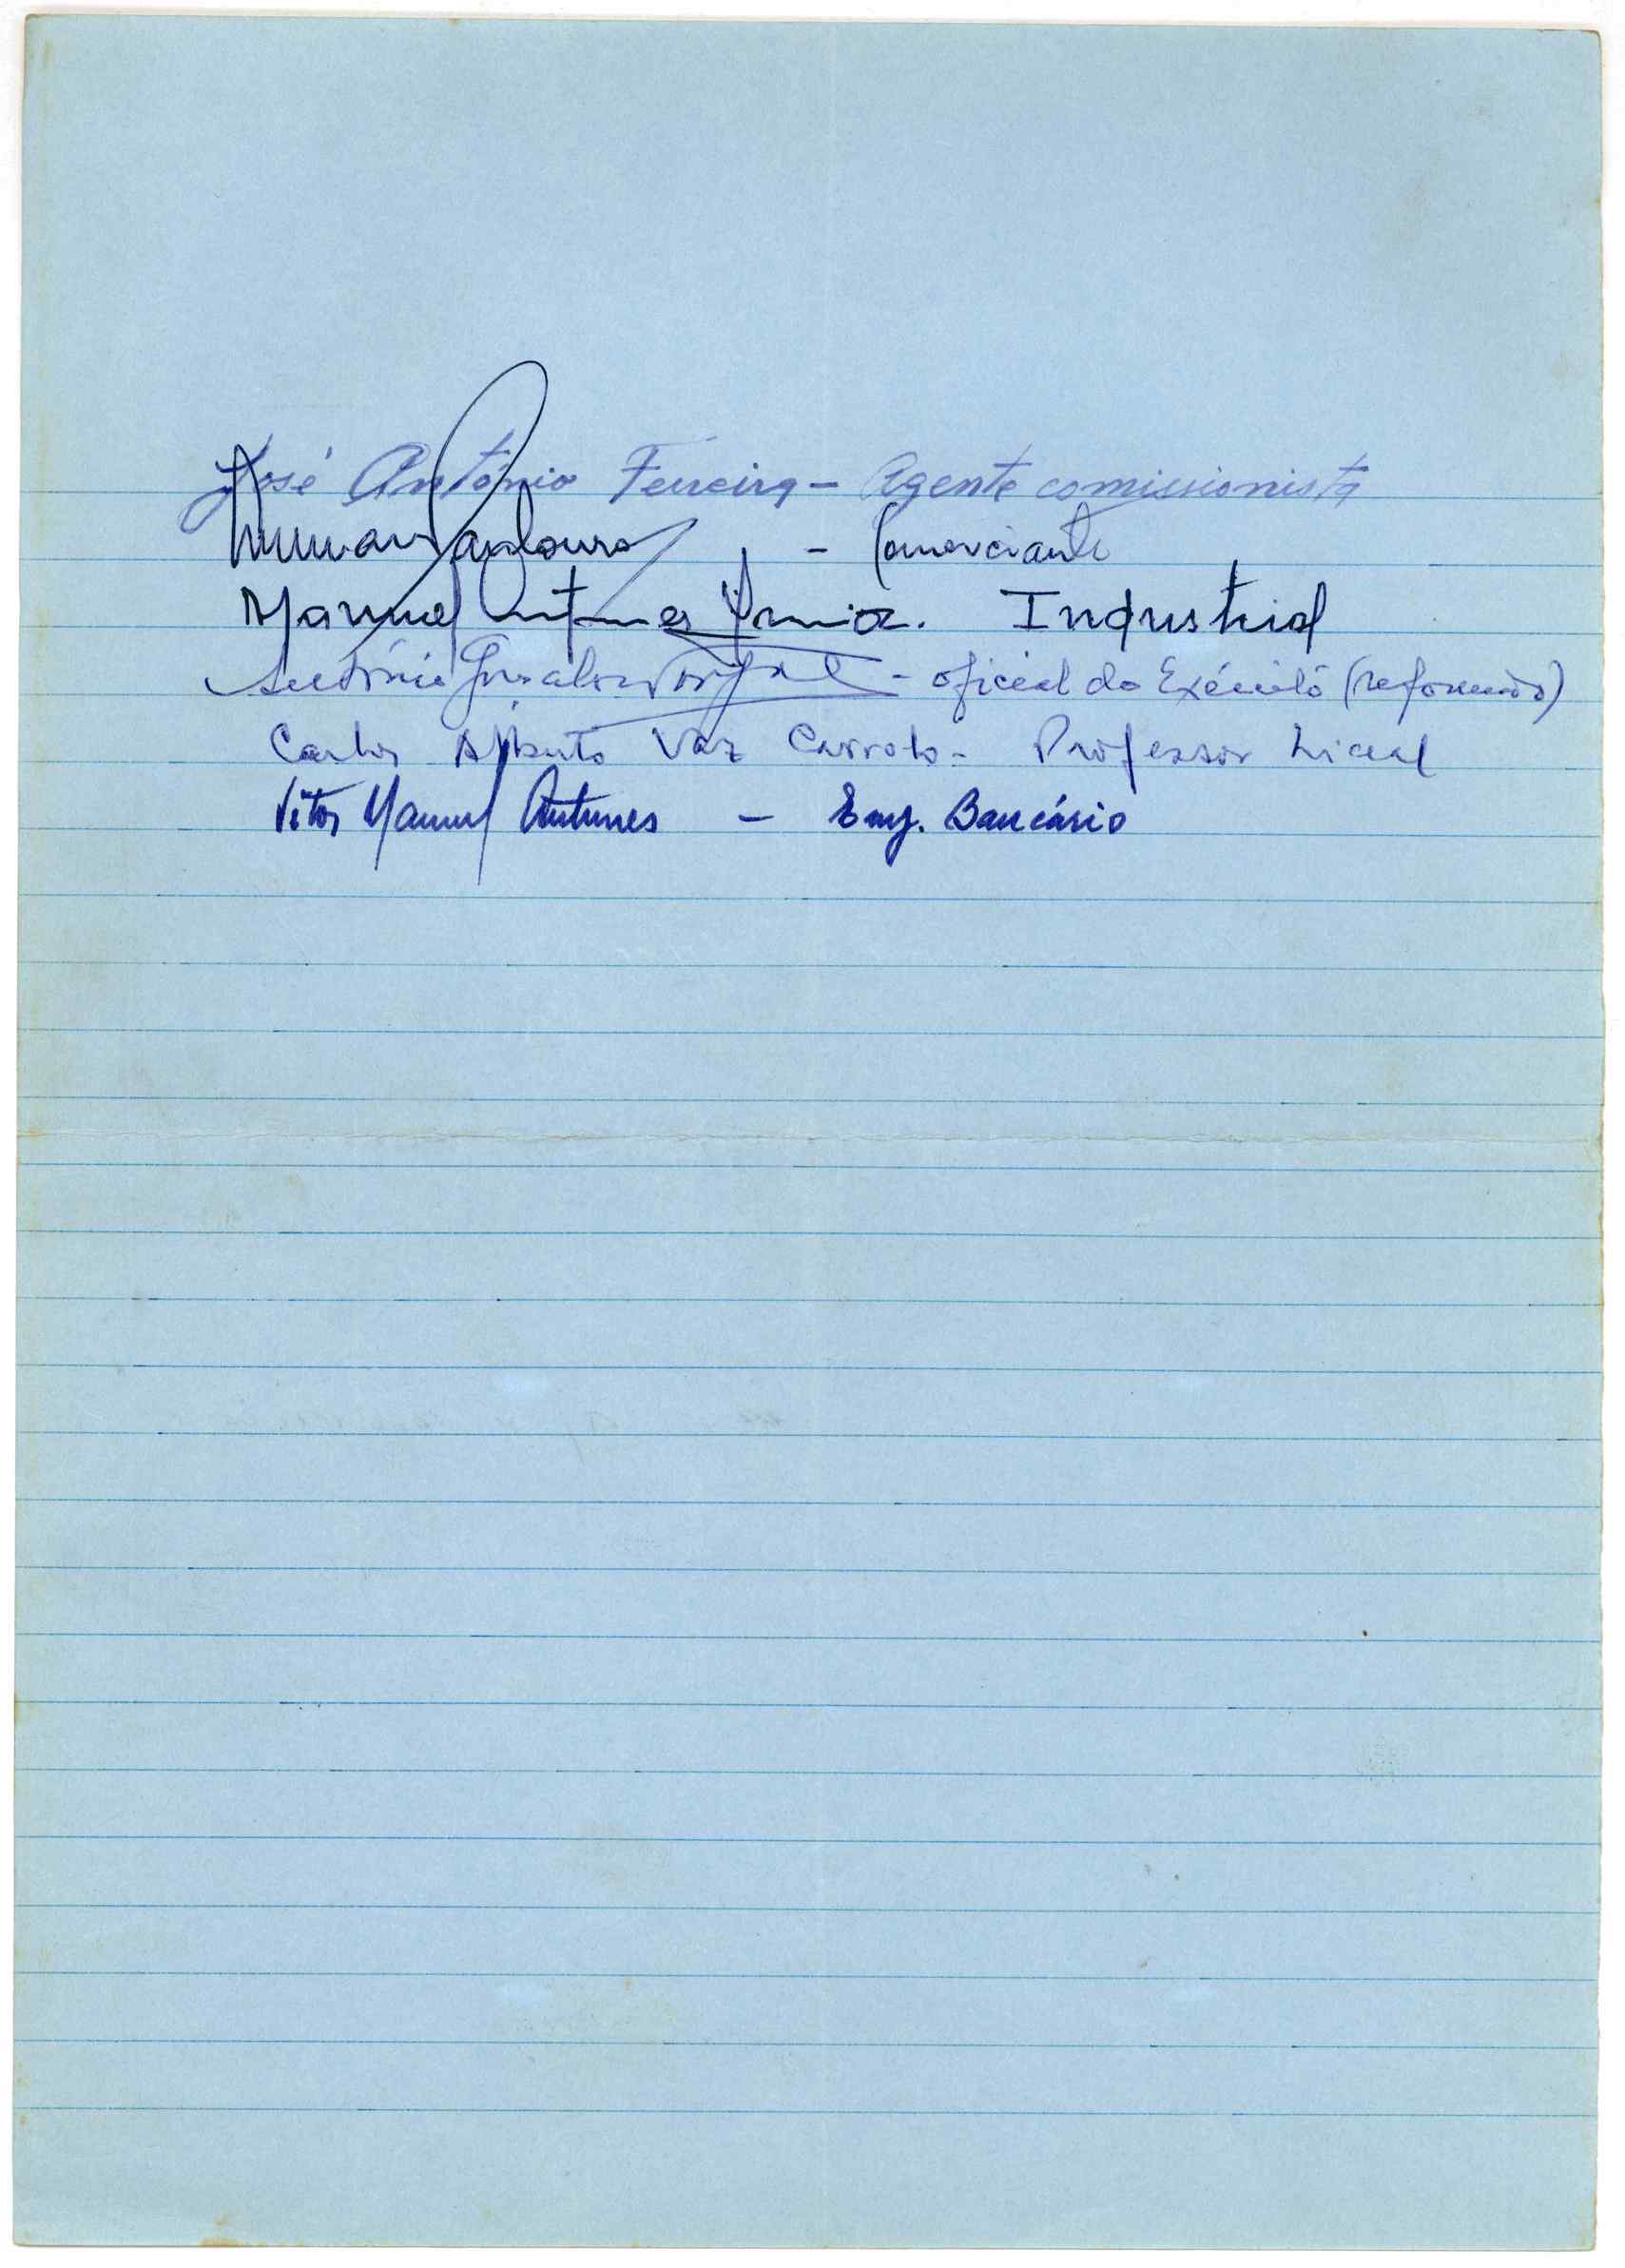 José António Ferreira - Agente comissionista
- Comerciante
Manuel Antunes Industrial
António Gonçalves - oficial do Exército (reformado)
Carlos Alberto Vaz Carroto - Professor Liceal
Vitor Manuel Antunes - Emp. Bancário